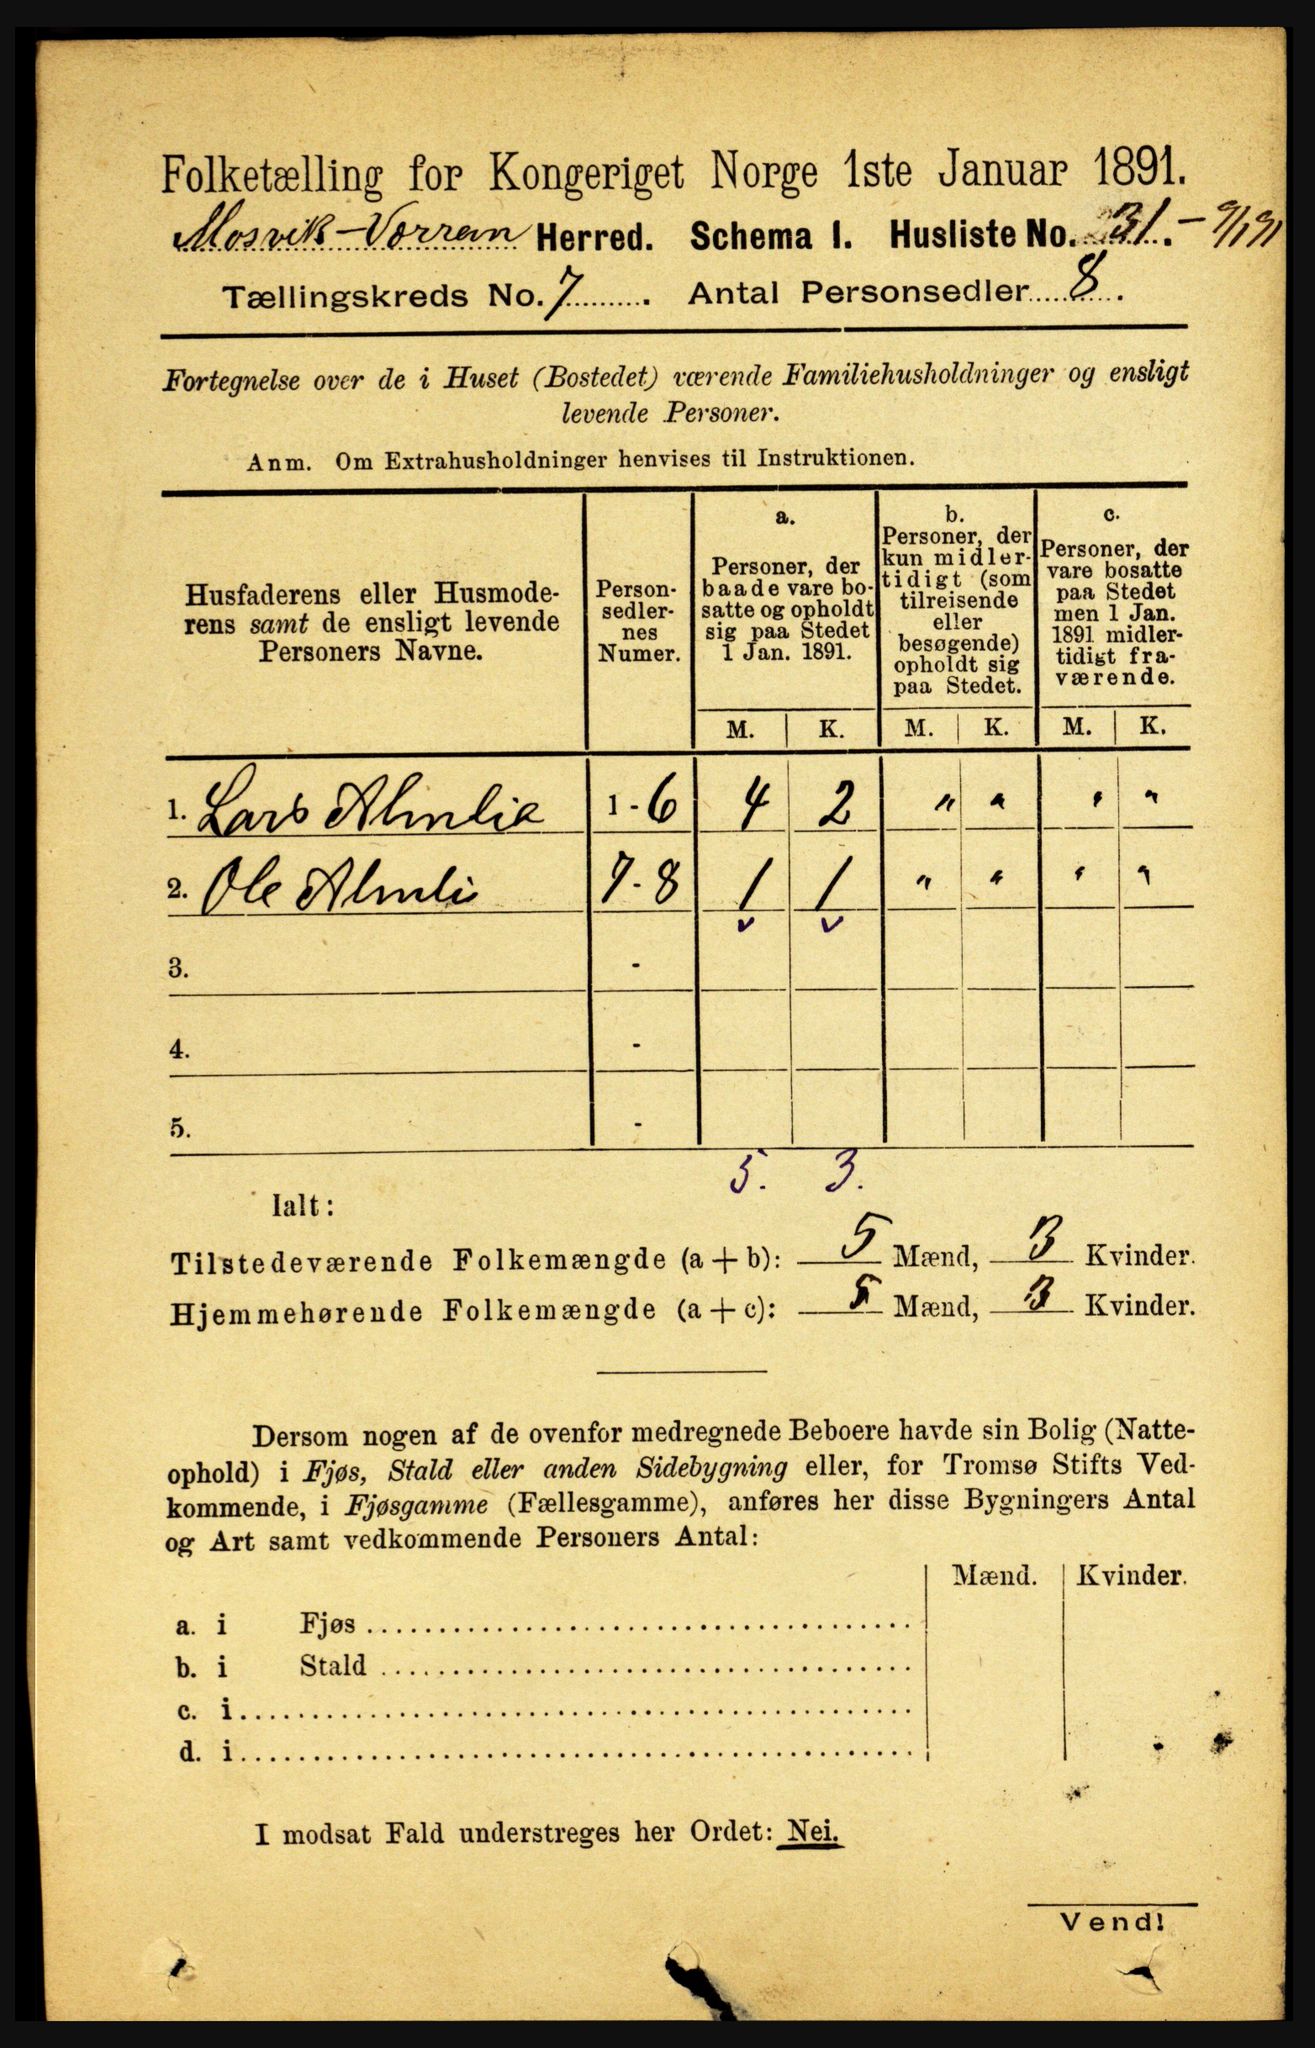 Folketælling for Kongeriget Norge 1ste Januar 1891.
Mosvik-Verran Herred. Schema I. Husliste No. 31. - 9/1 91
Tællingskreds No. 7. Antal Personsedler 8.
Fortegnelse over de i Huset (Bostedet) værende Familiehusholdninger og ensligt
levende Personer.
Anm. Om Extrahusholdninger henvises til Instruktionen.
Husfaderens eller Husmode-
rens samt de ensligt levende
Personers Navne.
Person-
sedler-
nes
Numer.
a.
Personer, der
baade vare bo-
satte og opholdt
sig paa Stedet
1 Jan. 1891.
b.
Personer, der
kun midler-
tidigt (som
tilreisende
eller
besøgende)
opholdt sig
paa Stedet.
c.
Personer, der
vare bosatte
paa Stedet
men 1 Jan.
1891 midler-
tidigt fra-
værende.
M. K. M. K. M. K.
1. Lars Almlie 1 - 6 4 2 " " " "
2. Ole Almli 7 - 8 1 1 " " " "
3. -
4. -
5. -
5. 3.
Ialt:
Tilstedeværende Folkemængde (a + b): 5 Mænd, 3 Kvinder.
Hjemmehørende Folkemængde (a + c): 5 Mænd, 3 Kvinder.
Dersom nogen af de ovenfor medregnede Beboere havde sin Bolig (Natte-
ophold) i Fjøs, Stald eller anden Sidebygning eller, for Tromsø Stifts Ved-
kommende, i Fjøsgamme (Fællesgamme), anføres her disse Bygningers Antal
og Art samt vedkommende Personers Antal:
Mænd. Kvinder.
a. i Fjøs
b. i Stald
c. i
d. i
I modsat Fald understreges her Ordet: Nei.
Vend!